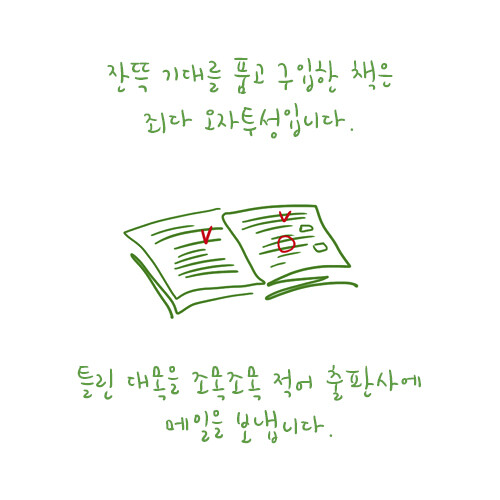 잔뜩 기대를 품고 구입한 책은
죄다 오자투성입니다.
틀린 대목을 조목조목 적어 출판사에
메일을 보냅니다.